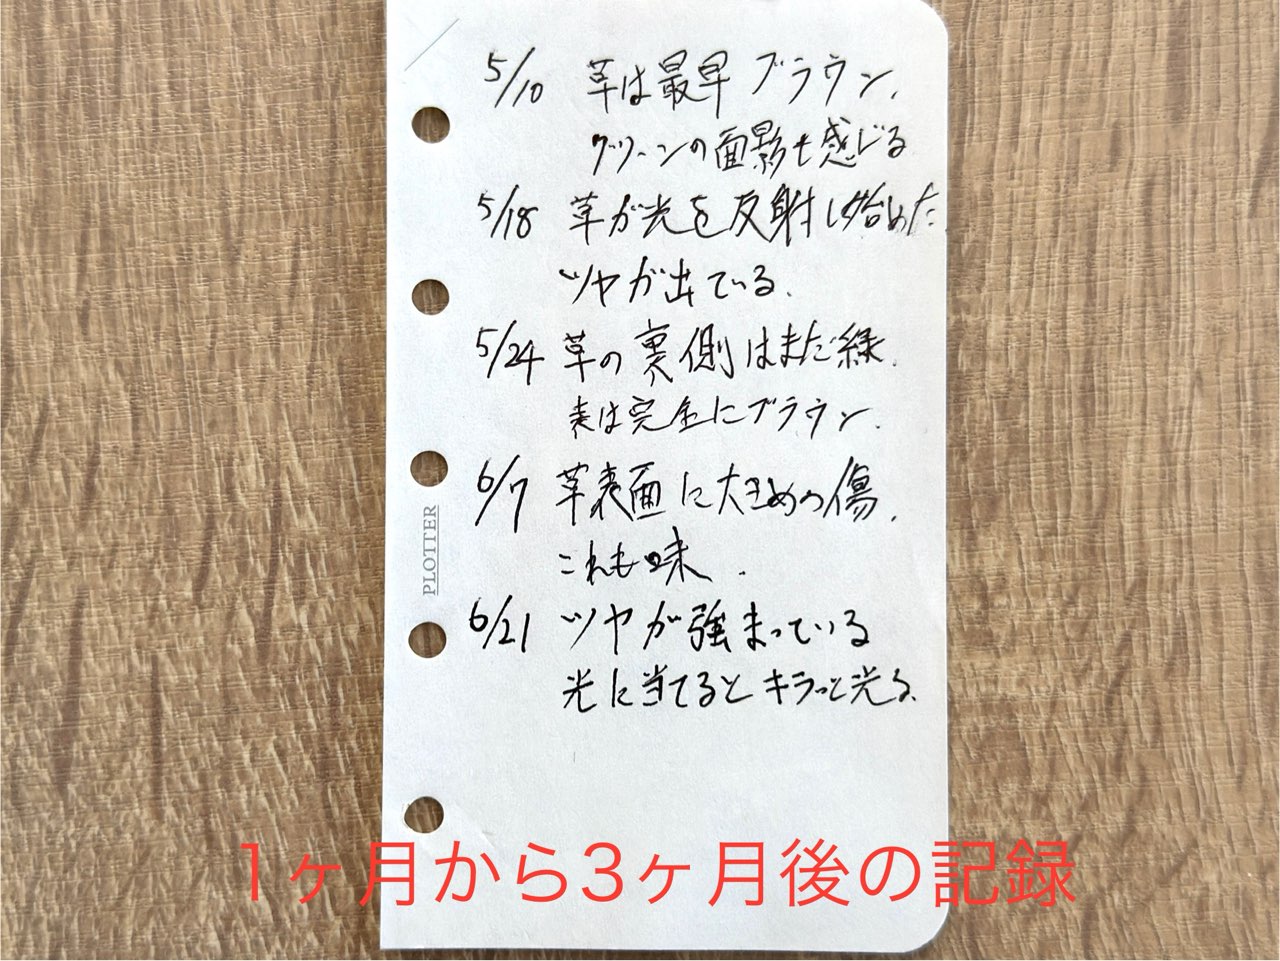 5/10 革は最早ブラウン.
グリーンの面影も感じる
5/18 革が光を反射し始めた
ツヤが出ている.
5/24 革の裏側はまだ緑.
表は完全にブラウン.
6/7 革表面に大きめの傷.
これも味.
6/21 ツヤが強まっている
光に当てるとキラっと光る.
PLOTTER
1ヶ月から3ヶ月後の記録